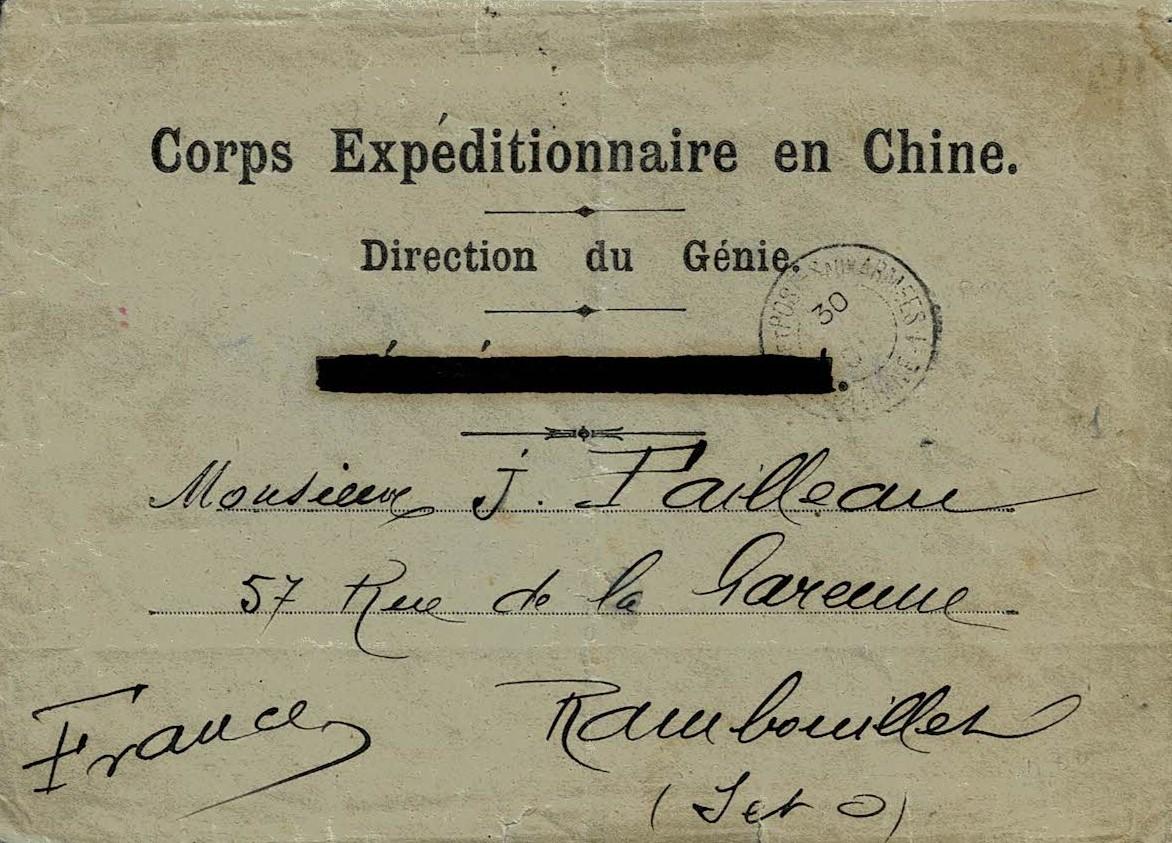 Corps Expéditionnaire en Chine.
Direction du Génie.
POSTES AUX ARMEES
30
Monsieur J. Pailleau
57 Rue de la Garenne
Rambouillet
France
(S et O)